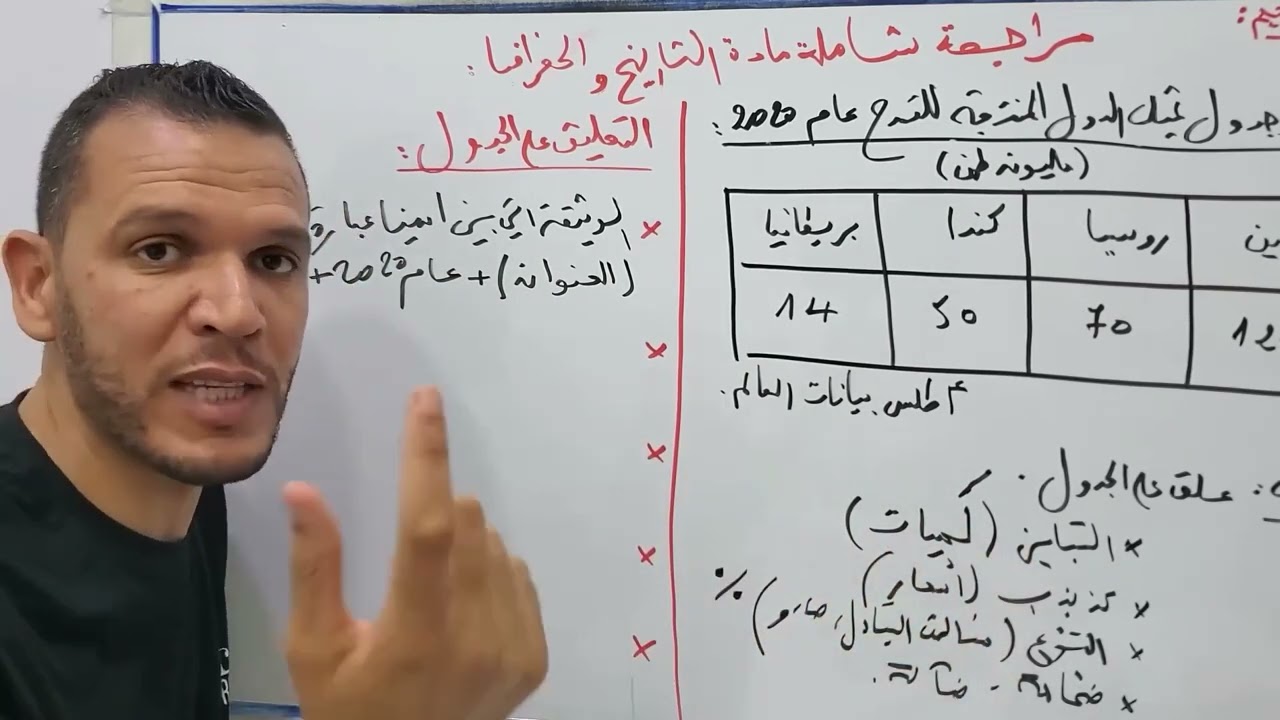 مراجعة شاملة مادة التاريخ و الجغرافيا :
جدول يمثل الدول المنتجة للقمح عام 2020 :
(مليون طن)
روسيا كندا بريطانيا
12 70 50 14
أطلس بيانات العالم .
علق على الجدول .
× التباين (كميات)
× تذبذب (أسعار)
× التنوع (مناطق التبادل، صا، و) %
× ضخامة - ضآلة .
التعليق على الجدول :
× الوثيقة التي بين أيدينا عبارة
(العنوان) + عام 2020 +
×
×
×
×